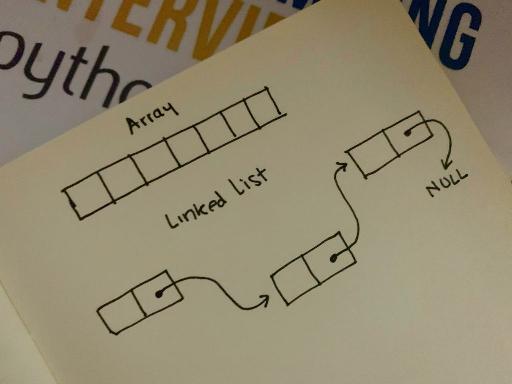 INTERVI
NG
pytho
Array
Linked List
NULL